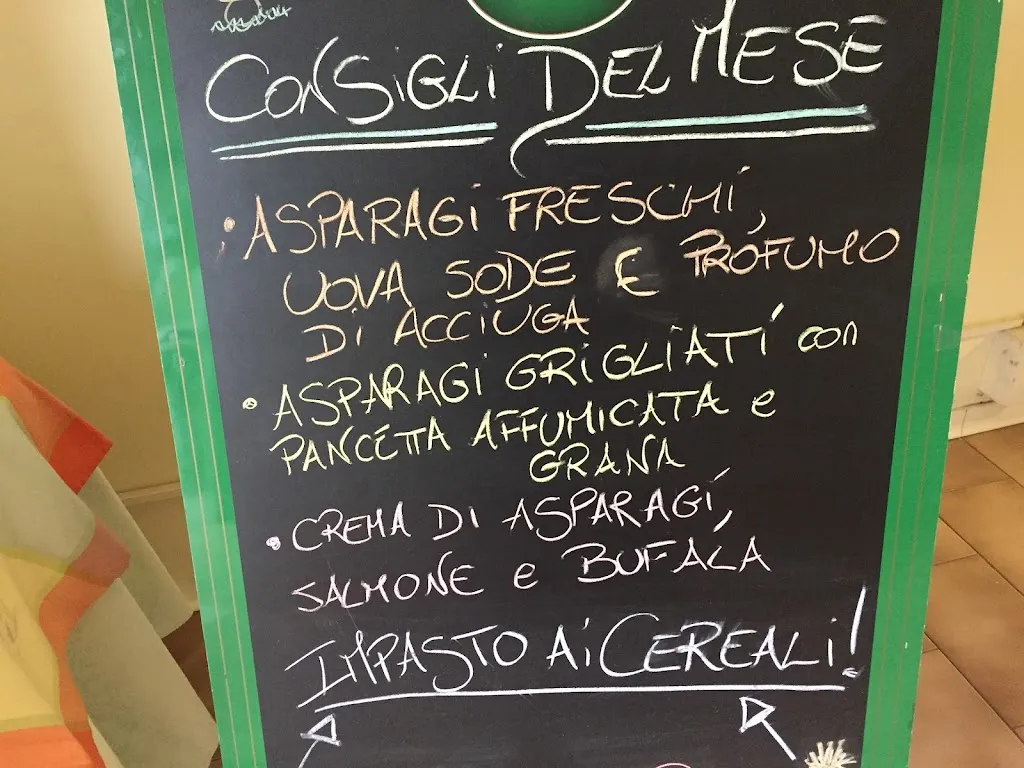 CONSIGLI DEL MESE
• ASPARAGI FRESCHI,
UOVA SODE E PROFUMO
DI ACCIUGA
• ASPARAGI GRIGLIATI con
PANCETTA AFFUMICATA e
GRANA
• CREMA DI ASPARAGI,
SALMONE e BUFALA
IMPASTO AI CEREALI!